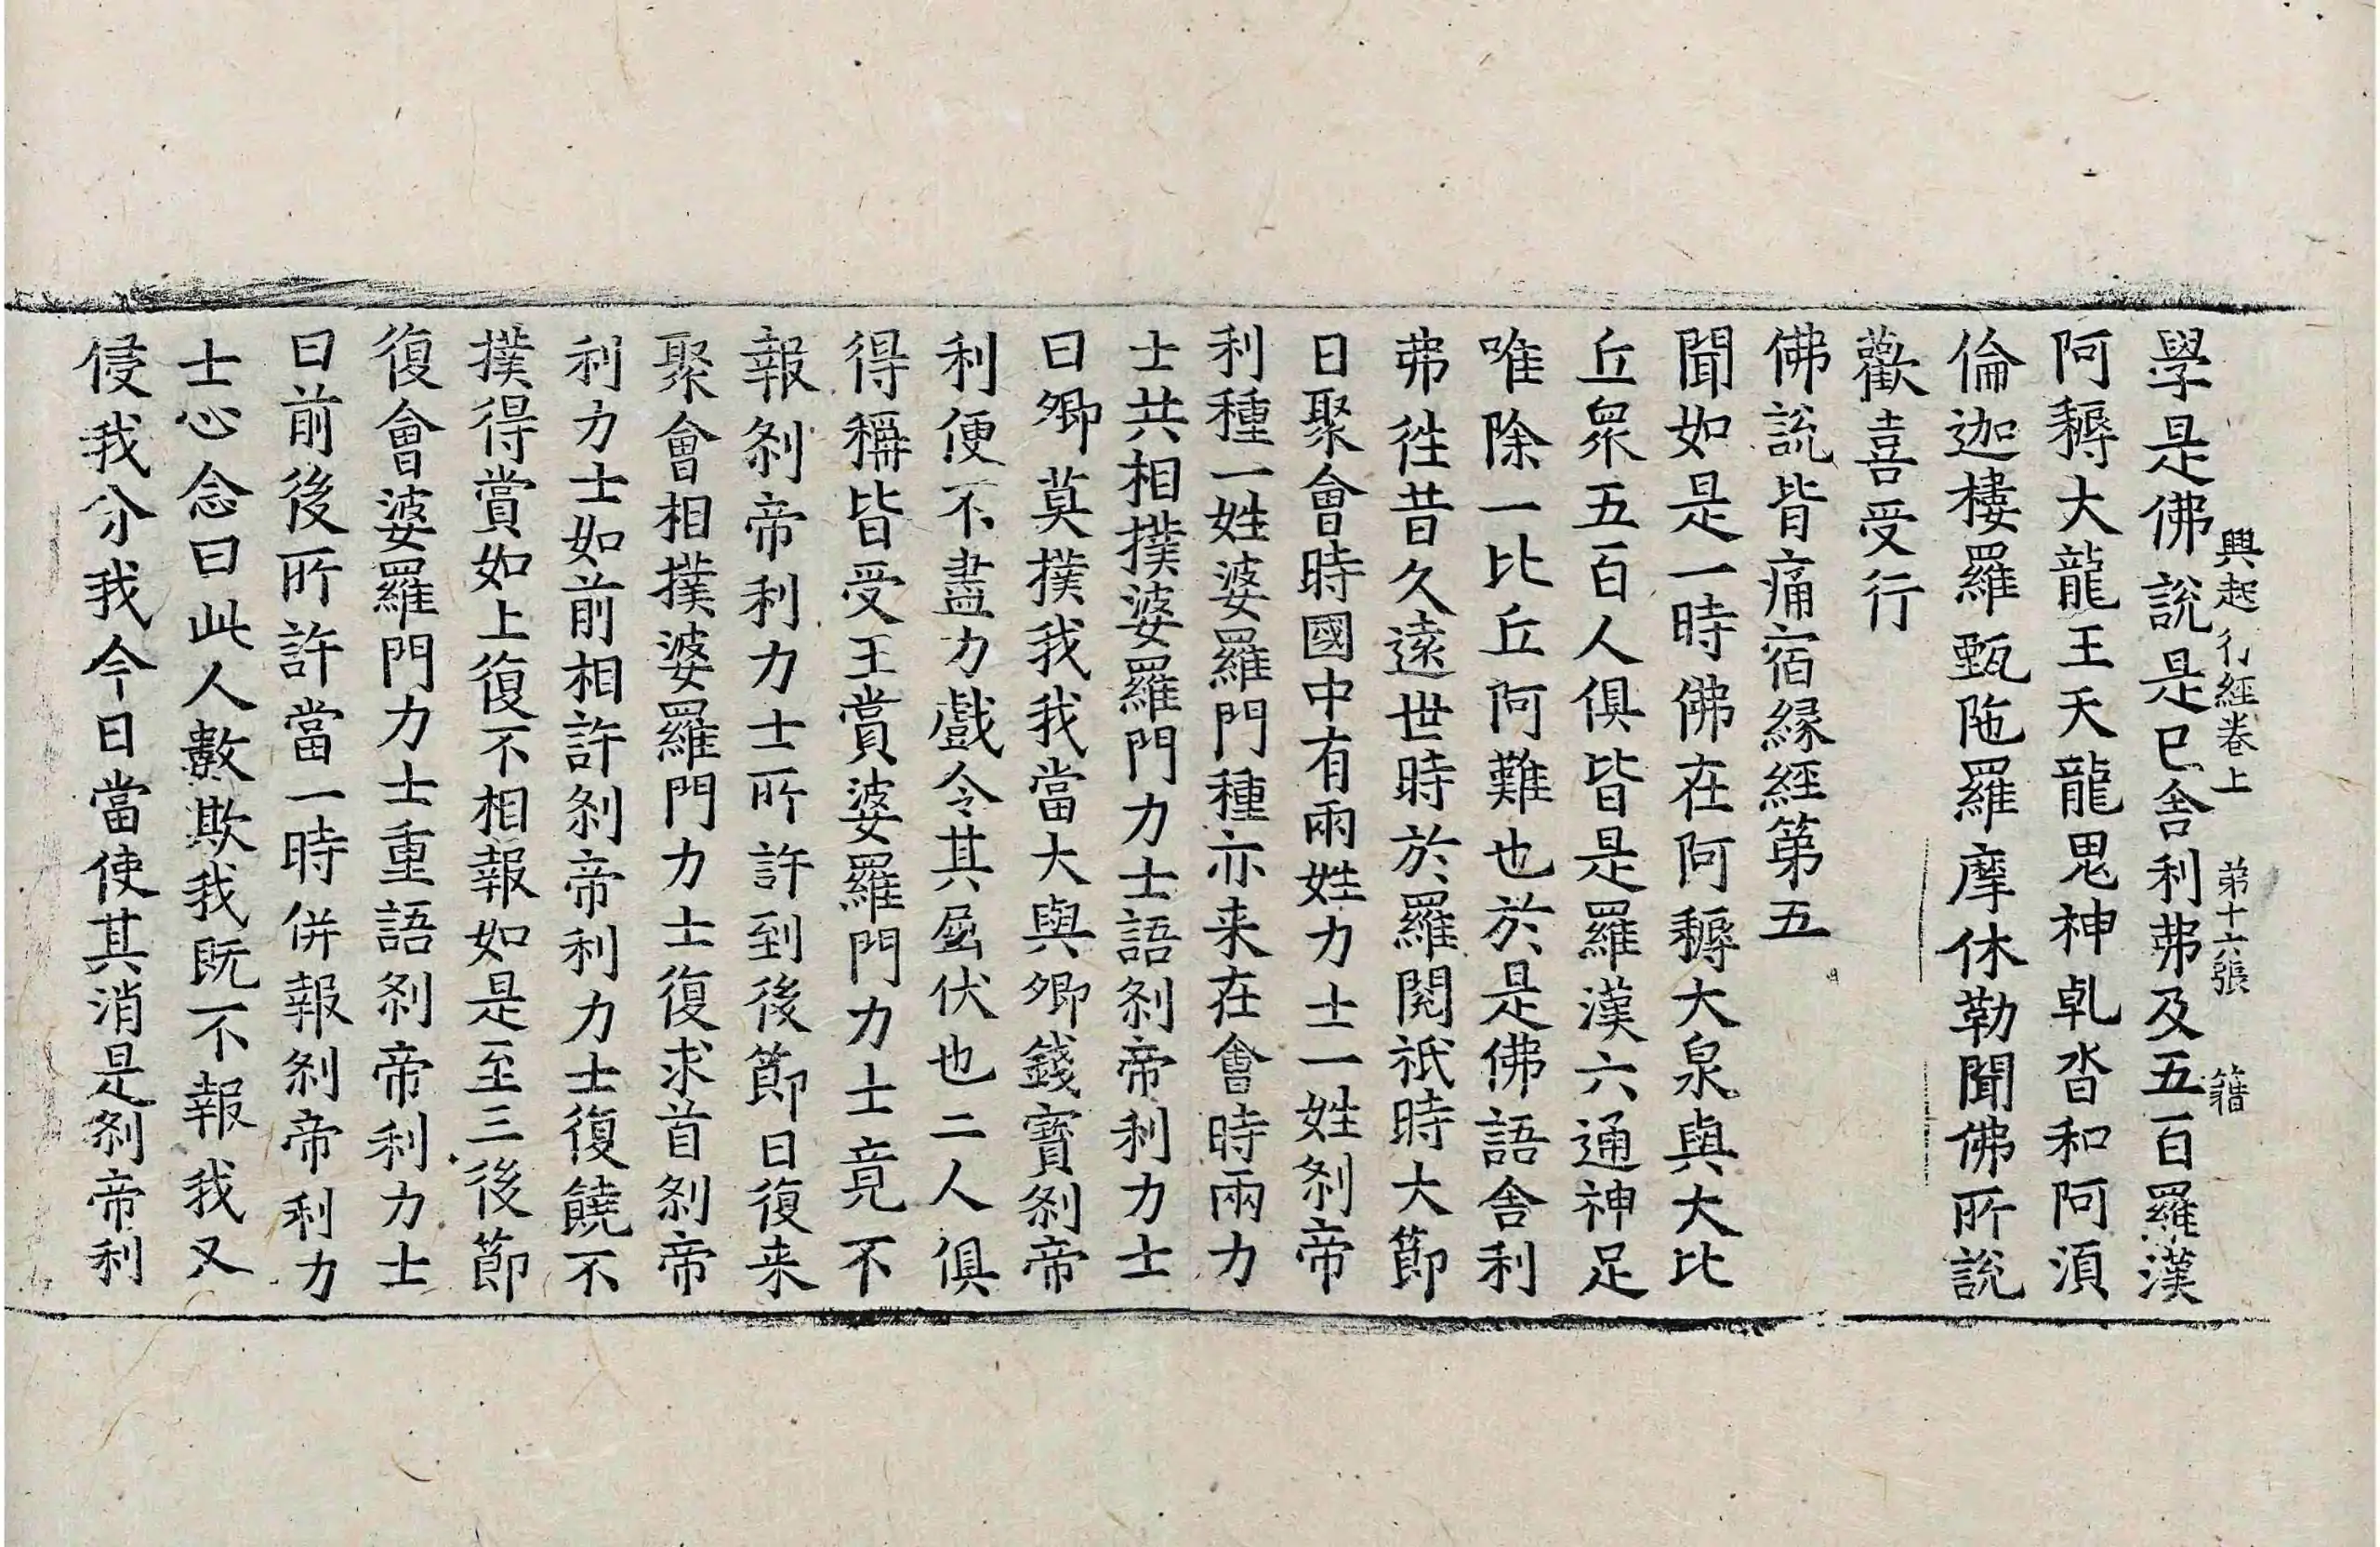 興起行經卷上 第十六張 籍
學是佛說是已舍利弗及五百羅漢
阿耨大龍王天龍鬼神乹沓和阿湏
倫迦樓羅甄陁羅摩休勒聞佛所說
歡喜受行
佛說背痛宿緣經第五
聞如是一時佛在阿耨大泉與大比
丘眾五百人俱皆是羅漢六通神足
唯除一比丘阿難也於是佛語舍利
弗徃昔久遠世時於羅閱祇時大節
日聚會時國中有兩姓力士一姓剎帝
利種一姓婆羅門種亦来在會時兩力
士共相撲婆羅門力士語剎帝利力士
曰卿莫撲我我當大與卿錢寶剎帝
利便不盡力戲令其屈伏也二人俱
得稱皆受王賞婆羅門力士竟不
報剎帝利力士所許到後節日復来
聚會相撲婆羅門力士復求首剎帝
利力士如前相許剎帝利力士復饒不
撲得賞如上復不相報如是至三後節
復會婆羅門力士重語剎帝利力士
曰前後所許當一時併報剎帝利力
士心念曰此人數欺我既不報我又
侵我分我今日當使其消是剎帝利